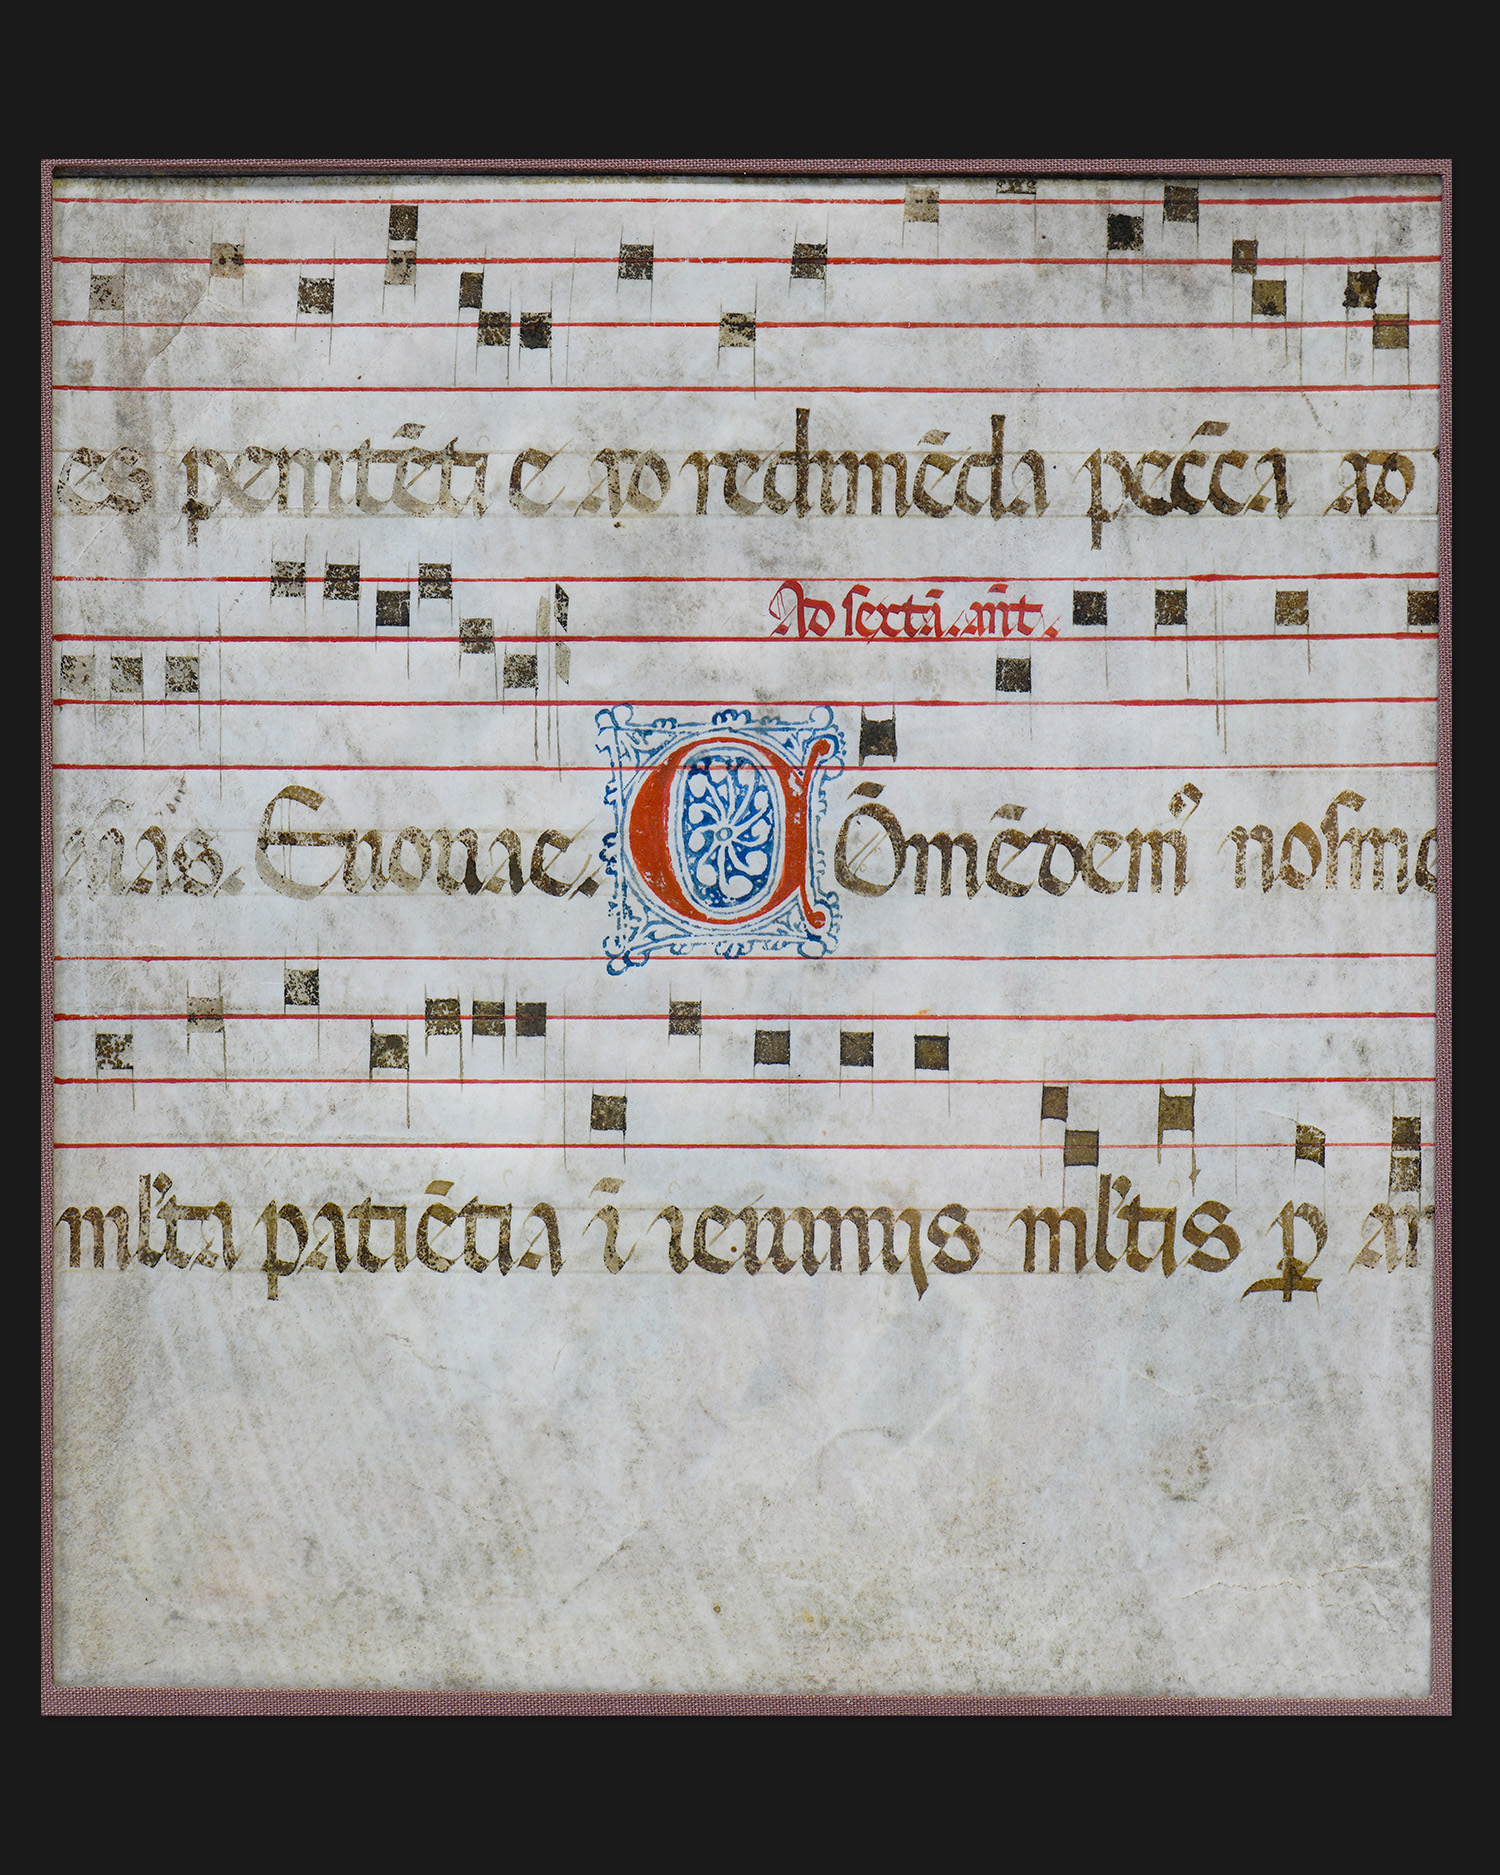 es penitēti e ad redimēda pecc̄a ad
Ad sextā. an̄t.
mas. Euouae. Cōmēdem⁹ nosme
ml̓ta patiētia ī ieiuniis ml̓tis ꝑ ar